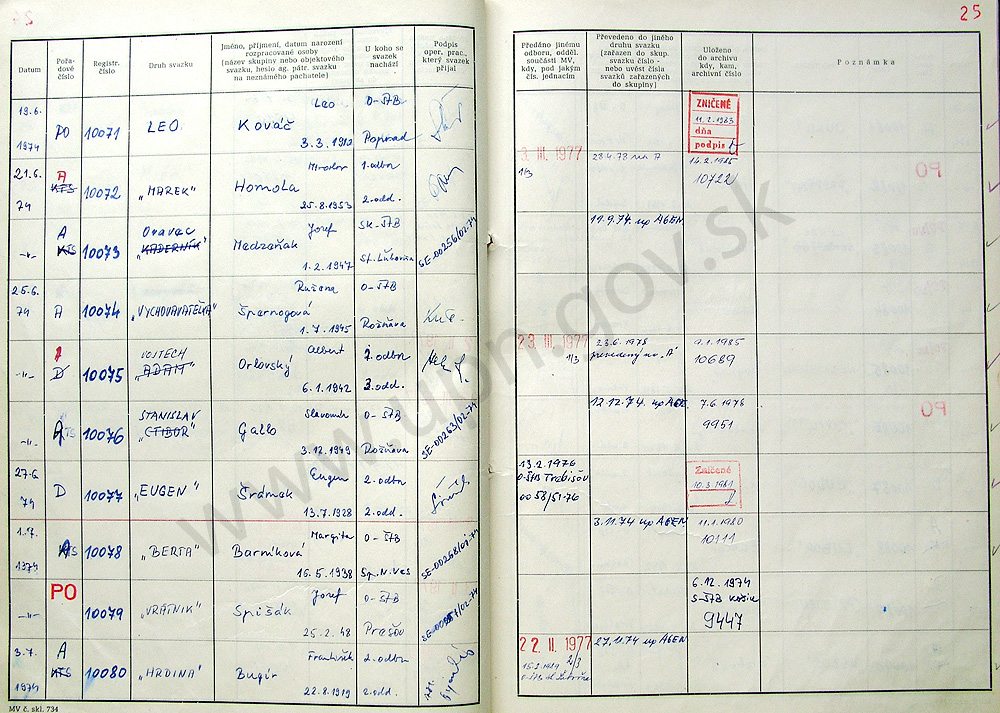 25
Datum
Pořadové číslo
Registr. číslo
Druh svazku
Jméno, příjmení, datum narození
rozpracované osoby
(název skupiny nebo objektového
svazku, heslo ag. pátr. svazku
na neznámého pachatele)
U koho se
svazek
nachází
Podpis
oper. prac.,
který svazek
přijal
Předáno jinému
odboru, odděl.
součásti MV,
kdy, pod jakým
čís. jednacím
Převedeno do jiného
druhu svazku
(zařazen do skup.
svazku číslo -
nebo uvést čísla
svazků zařazených
do skupiny)
Uloženo
do archivu
kdy, kam,
archivní číslo
Poznámka
19.6. 1974 PO 10071 LEO
Leo
Kováč
3.3.1912
O-ŠtB
Poprad
ZNIČENÉ
11.2.1983
dňa
podpis
21.6. 74 A KTS 10072 „MAREK"
Miroslav
Homola
25.8.1953
1. odbn
2. odd.
3. III. 1977
1/3
28.4.78 na A
14.2.1985
10722
-"- A KTS 10073
Oravac
„KADERNÍK"
Jozef
Medzaňak
1.2.1947
SK-ŠtB
St. Ľubovňa
SE-00256/02-74
19.9.74 up AGEN
25.6. 74 A 10074 „VYCHOVAVATEĽKA"
Ružena
Špernogová
1.7.1945
O-ŠtB
Rožňava
-"- D 10075
VOJTECH
„ADAM"
Albert
Orlovský
6.1.1942
2. odbn
3. odd.
23. III. 1977
1/3
23.6.1978
prevedený na „A"
9.1.1985
10689
-"- A KTS 10076
STANISLAV
„CTIBOR"
Slavomír
Gallo
3.12.1949
O-ŠtB
Rožňava
SE-00263/02-74
12.12.74. up AGE.
7.6.1978
9951
27.6. 74 D 10077 „EUGEN"
Eugen
Šrámak
13.7.1928
2. odbn
2. odd.
13.2.1976
O-ŠtB Trebišov
0058/51-76
Zničené
10.3.1981
1.7. 1974 A KTS 10078 „BERTA"
Margita
Barniková
16.5.1938
O-ŠtB
Sp.N.Ves
SE-00268/02-74
3.11.74 up AGEN
11.1.1980
10111
-"- PO 10079 „VRÁTNIK"
Jozef
Spišák
25.2.48
O-ŠtB
Prešov
6.12.1974
S-ŠtB Košice
9447
3.7. 1974 A KTS 10080 „HRDINA"
František
Bugír
22.8.1919
2. odbn
2. odd.
22. II. 1977
2/3
27.11.74 up AGEN
MV č. skl. 734
www.upn.gov.sk